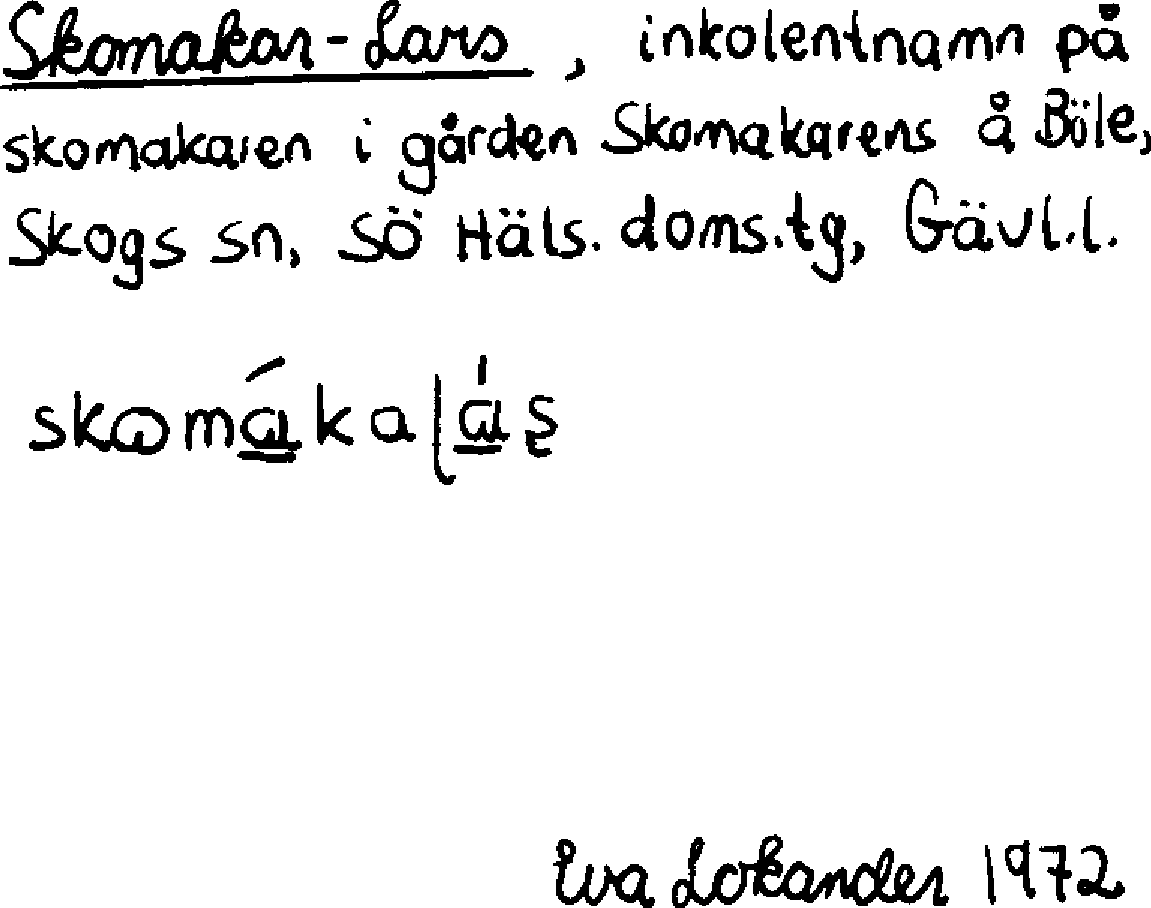 Skomakar-Lars, inkolentnamn på
skomakaren i gården Skomakarens å Böle,
Skogs sn, Sö Häls. doms.tg, Gävl.l.
skωmákaļás̨
Eva Lokander 1972